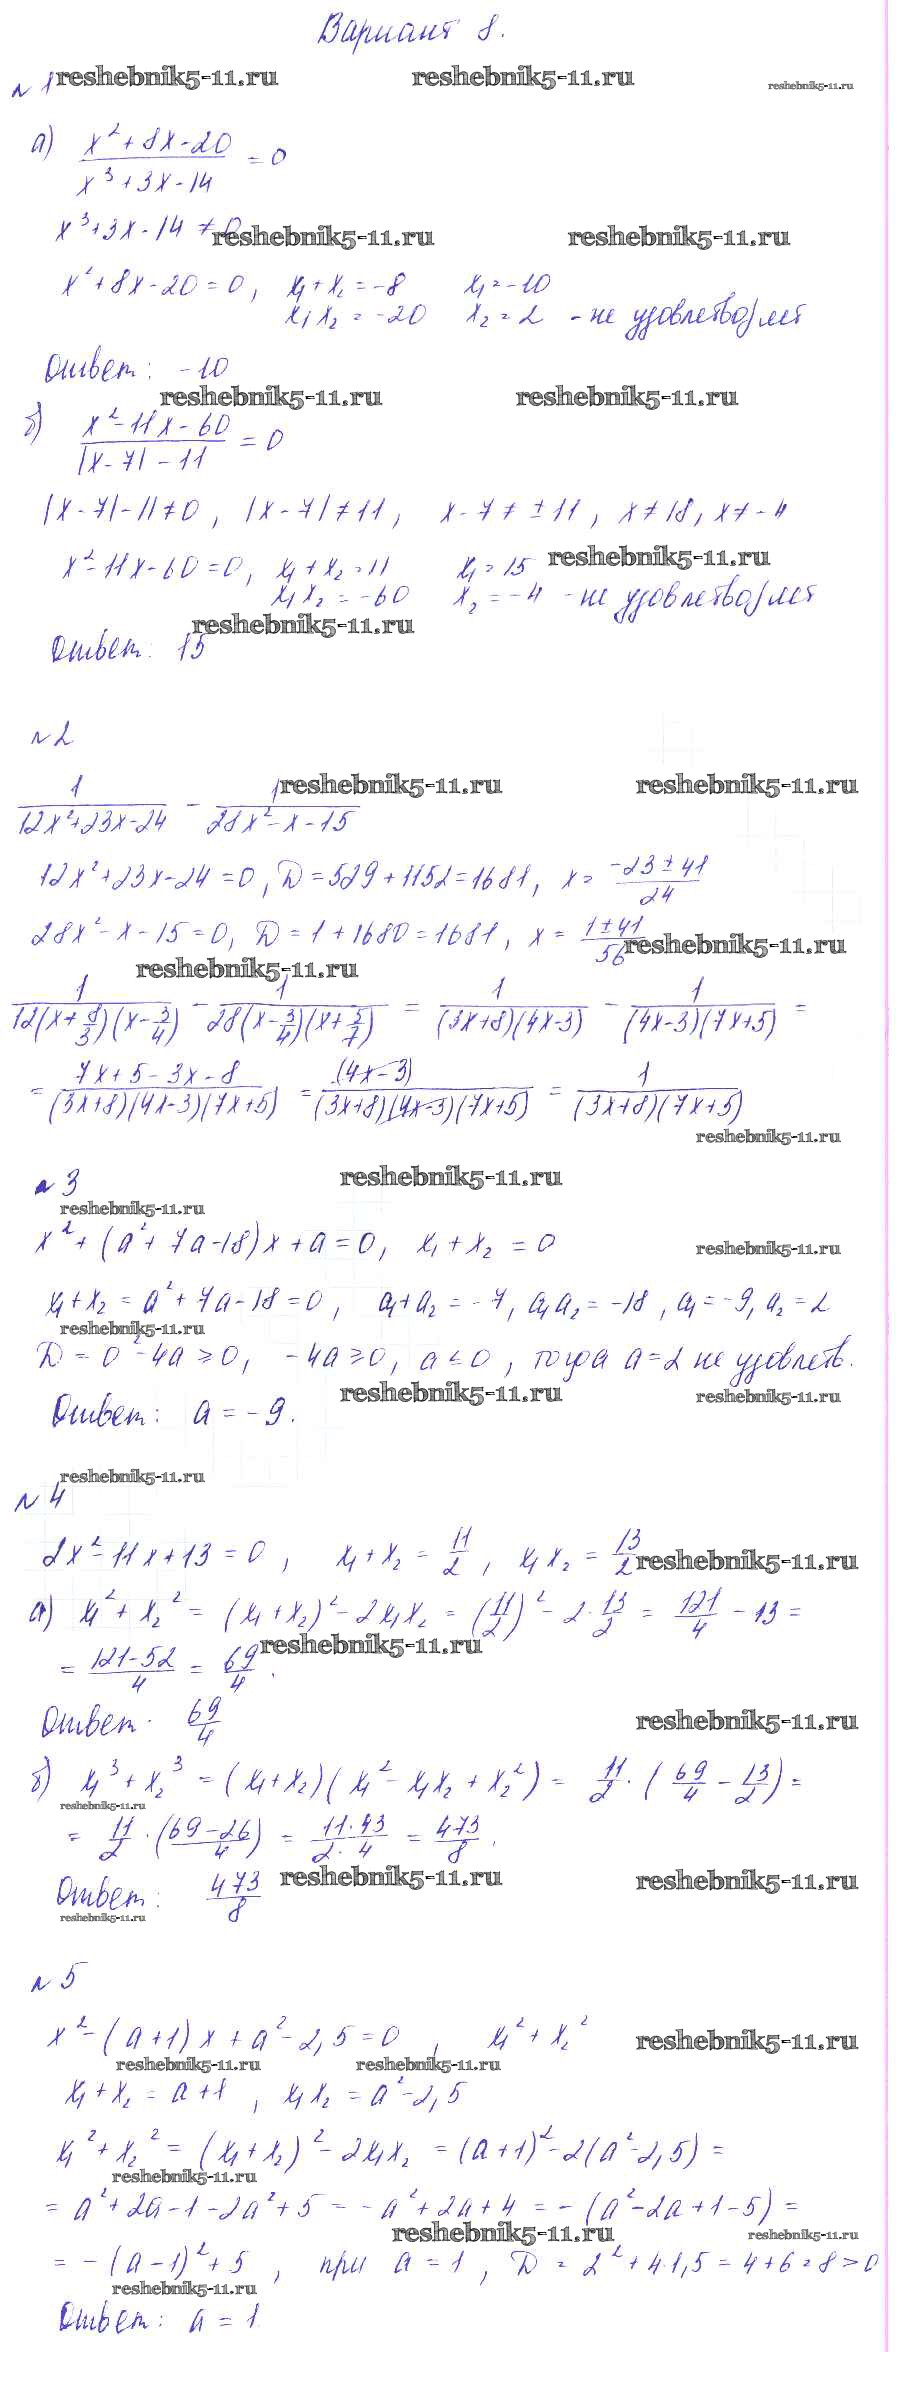 Вариант 8.
№1 reshebnik5-11.ru reshebnik5-11.ru reshebnik5-11.ru
а) (x²+8x-20)/(x³+3x-14) = 0
x³+3x-14 ≠ 0
reshebnik5-11.ru reshebnik5-11.ru
x²+8x-20=0, x₁+x₂=-8 x₁=-10
x₁x₂=-20 x₂=2 - не удовлетворяет
Ответ: -10
reshebnik5-11.ru reshebnik5-11.ru
б) (x²-11x-60)/(|x-7|-11) = 0
|x-7|-11≠0, |x-7|≠11, x-7≠±11, x≠18, x≠-4
x²-11x-60=0, x₁+x₂=11 x₁=15 reshebnik5-11.ru
x₁x₂=-60 x₂=-4 - не удовлетворяет
reshebnik5-11.ru
Ответ: 15
№2
1/(12x²+23x-24) - 1/(28x²-x-15)
reshebnik5-11.ru reshebnik5-11.ru
12x²+23x-24=0, D=529+1152=1681, x=(-23±41)/24
28x²-x-15=0, D=1+1680=1681, x=(1±41)/56
reshebnik5-11.ru
reshebnik5-11.ru
1/(12(x+8/3)(x-3/4)) - 1/(28(x-3/4)(x+5/7)) = 1/((3x+8)(4x-3)) - 1/((4x-3)(7x+5)) =
= (7x+5-3x-8)/((3x+8)(4x-3)(7x+5)) = (4x-3)/((3x+8)(4x-3)(7x+5)) = 1/((3x+8)(7x+5))
reshebnik5-11.ru
№3 reshebnik5-11.ru
reshebnik5-11.ru
x²+(a²+7a-18)x+a=0, x₁+x₂=0
reshebnik5-11.ru
x₁+x₂=a²+7a-18=0, a₁+a₂=-7, a₁a₂=-18, a₁=-9, a₂=2
reshebnik5-11.ru
D=0²-4a≥0, -4a≥0, a≤0, тогда a=2 не удовлетв.
reshebnik5-11.ru reshebnik5-11.ru
Ответ: a=-9.
reshebnik5-11.ru
№4
2x²-11x+13=0, x₁+x₂=11/2, x₁x₂=13/2
reshebnik5-11.ru
а) x₁²+x₂²=(x₁+x₂)²-2x₁x₂=(11/2)²-2·13/2=121/4-13=
reshebnik5-11.ru
=(121-52)/4=69/4.
Ответ. 69/4
reshebnik5-11.ru
б) x₁³+x₂³=(x₁+x₂)(x₁²-x₁x₂+x₂²)=11/2·(69/4-13/2)=
reshebnik5-11.ru
=11/2·((69-26)/4)=(11·43)/(2·4)=473/8.
reshebnik5-11.ru reshebnik5-11.ru
Ответ: 473/8
reshebnik5-11.ru
№5
x²-(a+1)x+a²-2,5=0, x₁²+x₂²
reshebnik5-11.ru
reshebnik5-11.ru reshebnik5-11.ru
x₁+x₂=a+1, x₁x₂=a²-2,5
x₁²+x₂²=(x₁+x₂)²-2x₁x₂=(a+1)²-2(a²-2,5)=
reshebnik5-11.ru
=a²+2a-1-2a²+5=-a²+2a+4=-(a²-2a+1-5)=
reshebnik5-11.ru reshebnik5-11.ru
=-(a-1)²+5, при a=1, D=2²+4·1,5=4+6=8>0
reshebnik5-11.ru
Ответ: a=1.